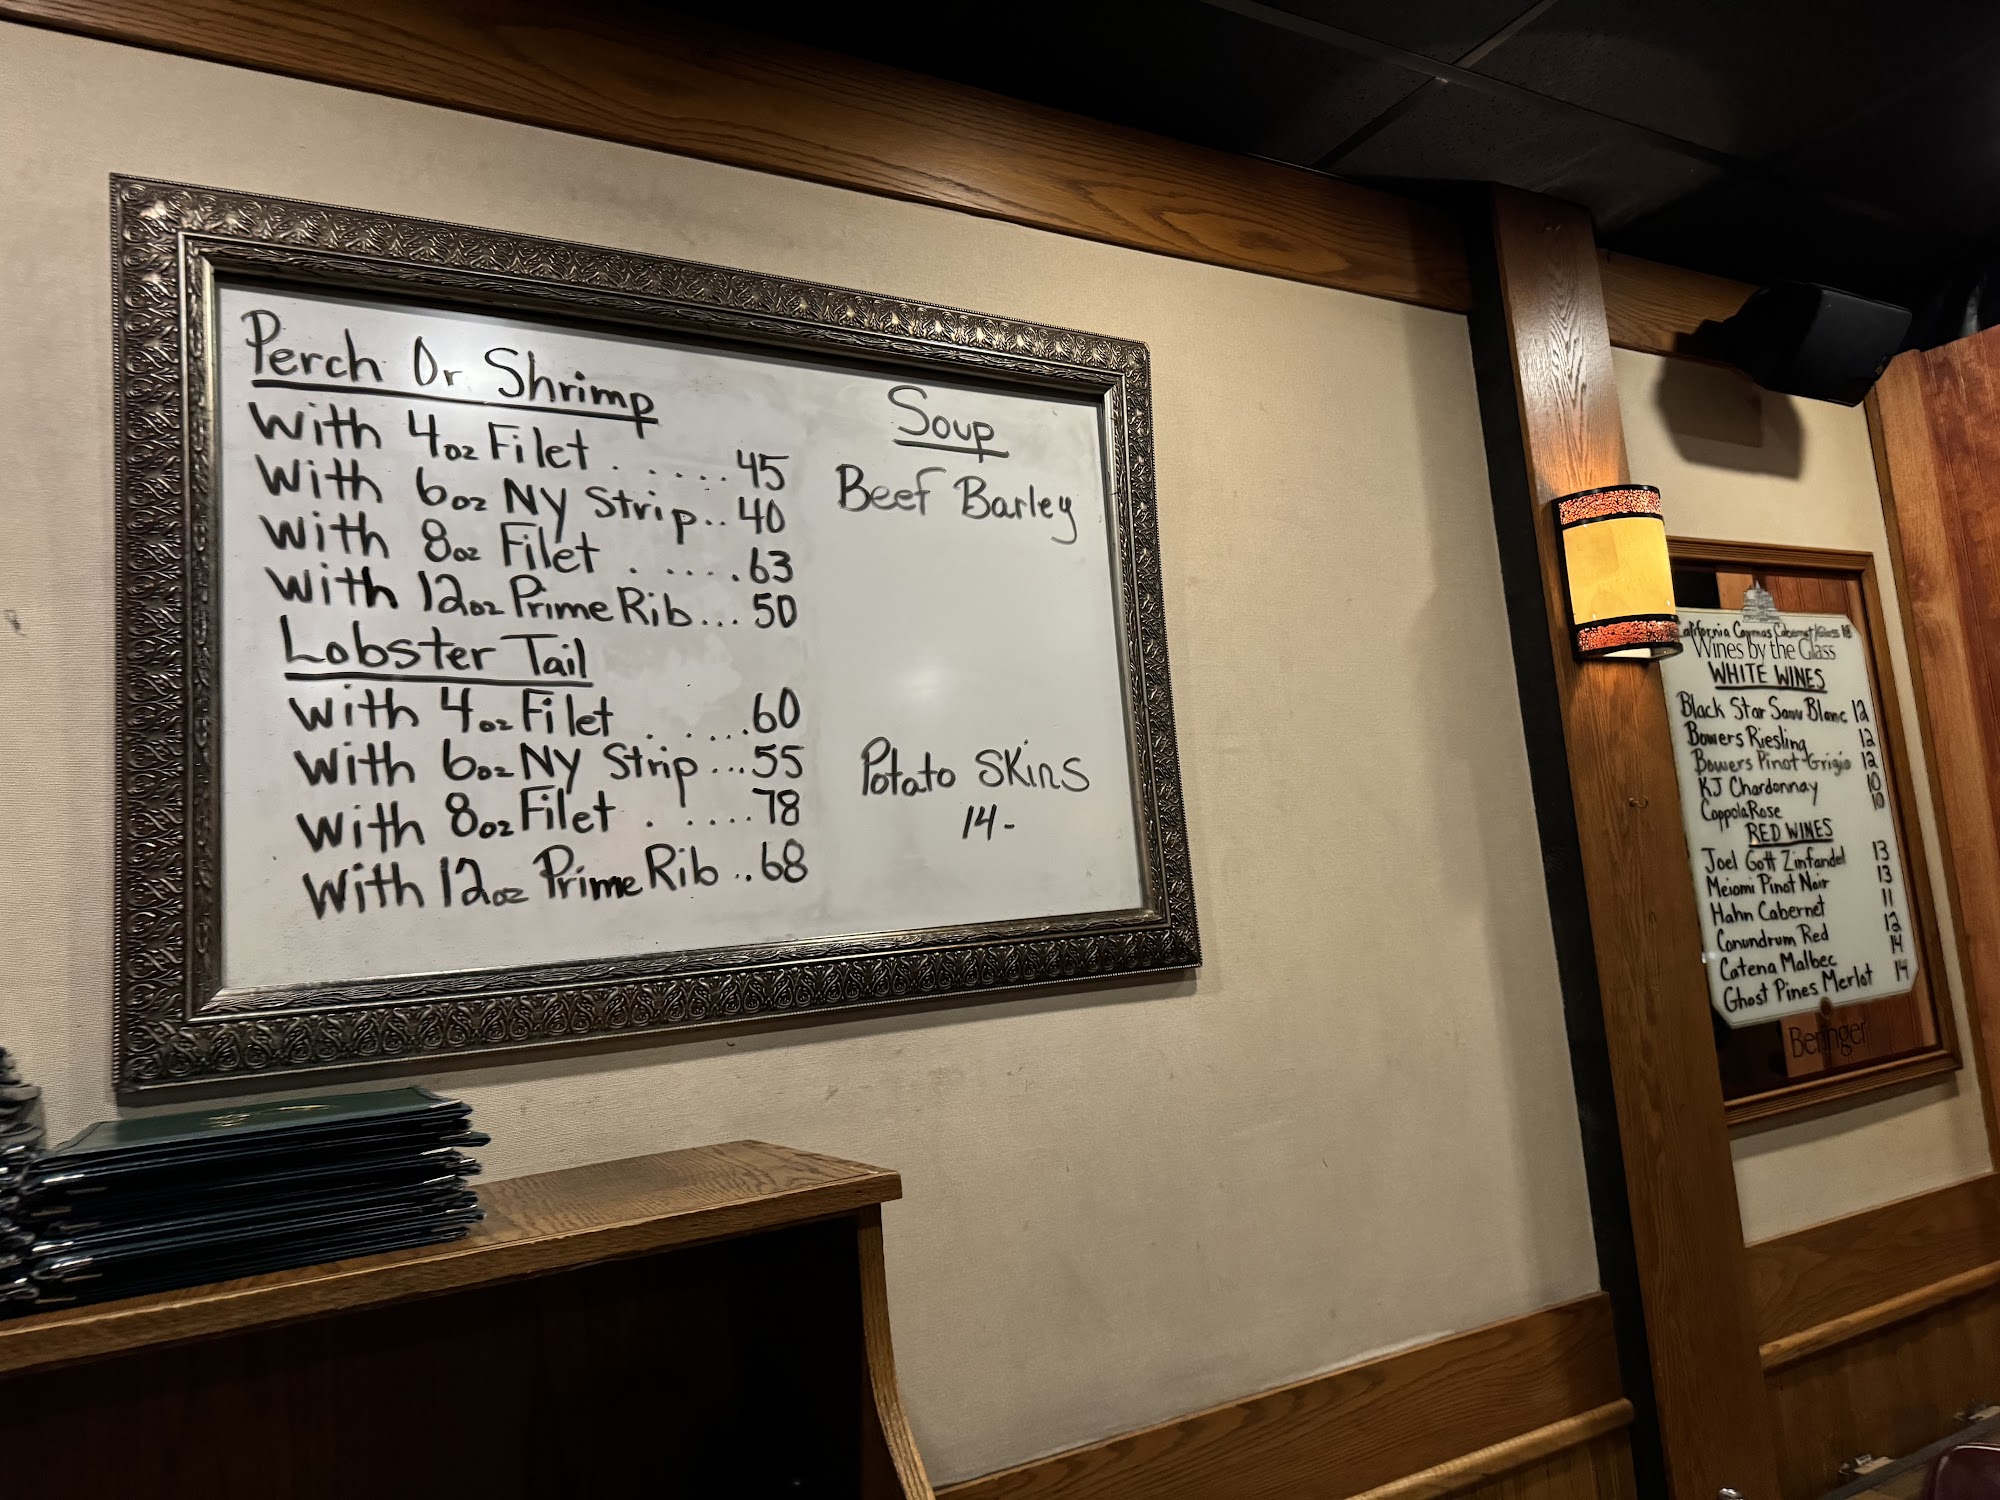 Perch Or Shrimp
With 4oz Filet . . . . . 45
With 6oz NY Strip.. 40
With 8oz Filet . . . . . 63
With 12oz Prime Rib... 50
Lobster Tail
With 4oz Filet . . . . . . 60
With 6oz NY Strip ... 55
With 8oz Filet . . . . . . 78
With 12oz Prime Rib .. 68
Soup
Beef Barley
Potato Skins
14-
California Caymus Cabernet/Glass 18
Wines by the Glass
WHITE WINES
Black Star Sauv Blanc 12
Bowers Riesling 12
Bowers Pinot Grigio 12
KJ Chardonnay 10
Coppola Rose 10
RED WINES
Joel Gott Zinfandel 13
Meiomi Pinot Noir 13
Hahn Cabernet 11
Conundrum Red 12
Catena Malbec 14
Ghost Pines Merlot 14
Beringer